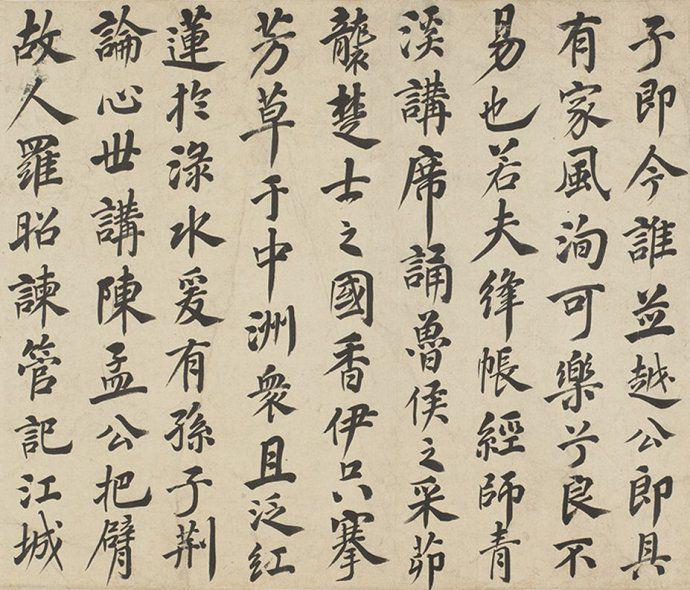 子即今誰並越公郎具
有家風洵可樂兮良不
易也若夫絳帳經師青
溪講席誦魯侯之采茆
襲楚士之國香伊只搴
芳草于中洲衆且泛紅
蓮於淥水爰有孫子荆
論心世講陳孟公把臂
故人羅昭諫管記江城